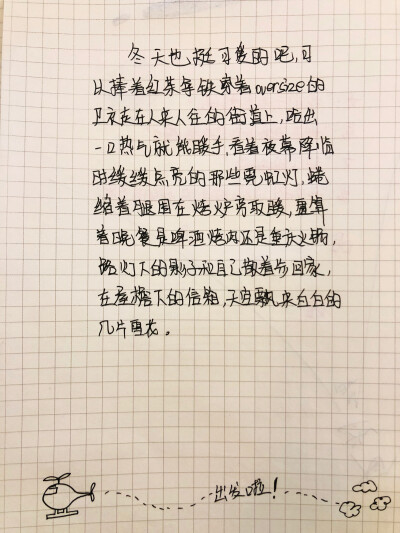 冬天也挺可爱的吧,可
以捧着红茶拿铁穿着oversize的
卫衣走在人来人往的街道上,哈出
一口热气就能暖手,看着夜幕降临
时缓缓点亮的那些霓虹灯,蜷
缩着腿围在烤炉旁取暖,盘算
着晚餐是啤酒烤肉还是重庆火锅,
路灯下的影子和自己散着步回家,
在屋檐下的信箱,天空飘来白白的
几片雪花。
出发啦!